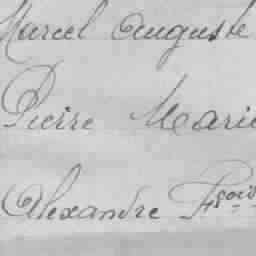 Marcel Auguste
Pierre Marie
Alexandre Fçois